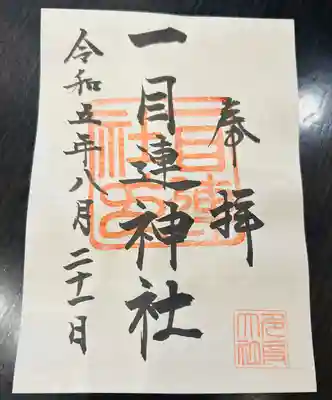 奉拝
一目連神社
令和五年八月二十一日